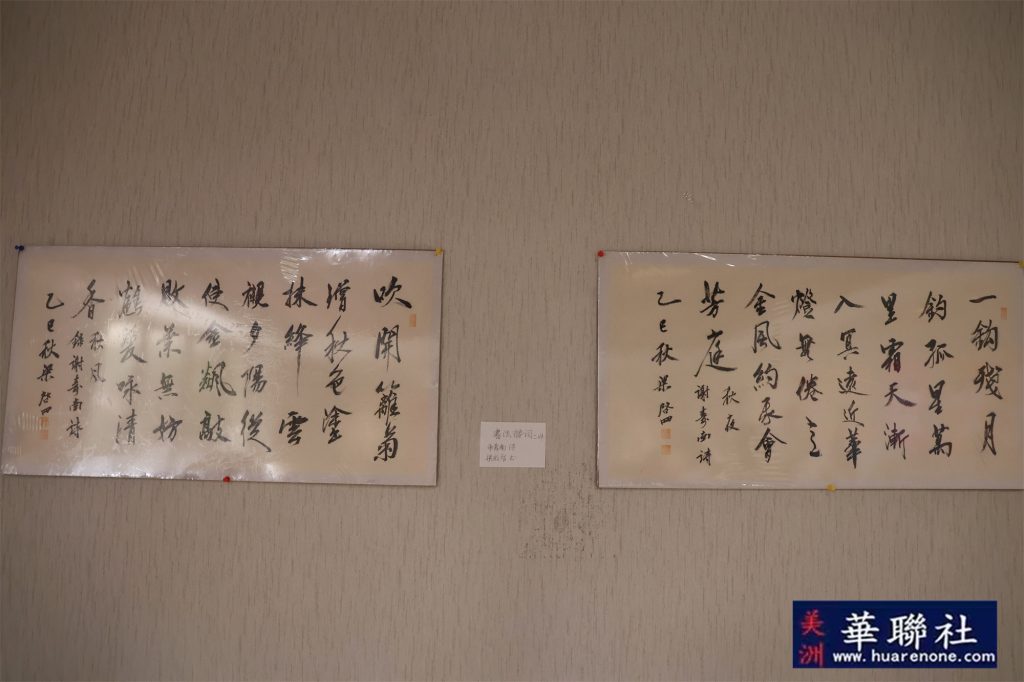 一鈎殘月
釣孤星萬
里霜天漸
入冥遠近華
燈無倦意
金風約我會
芳庭
秋夜
謝壽南詩
乙巳秋梁
吹開籬菊
增秋色塗
抹絳雲
襯夕陽從
使金飆敲
敗葉無妨
鶴髮咏清
香
秋風
錄謝壽南詩
乙巳秋梁
書法
美洲
華聯社
www.huarenone.com